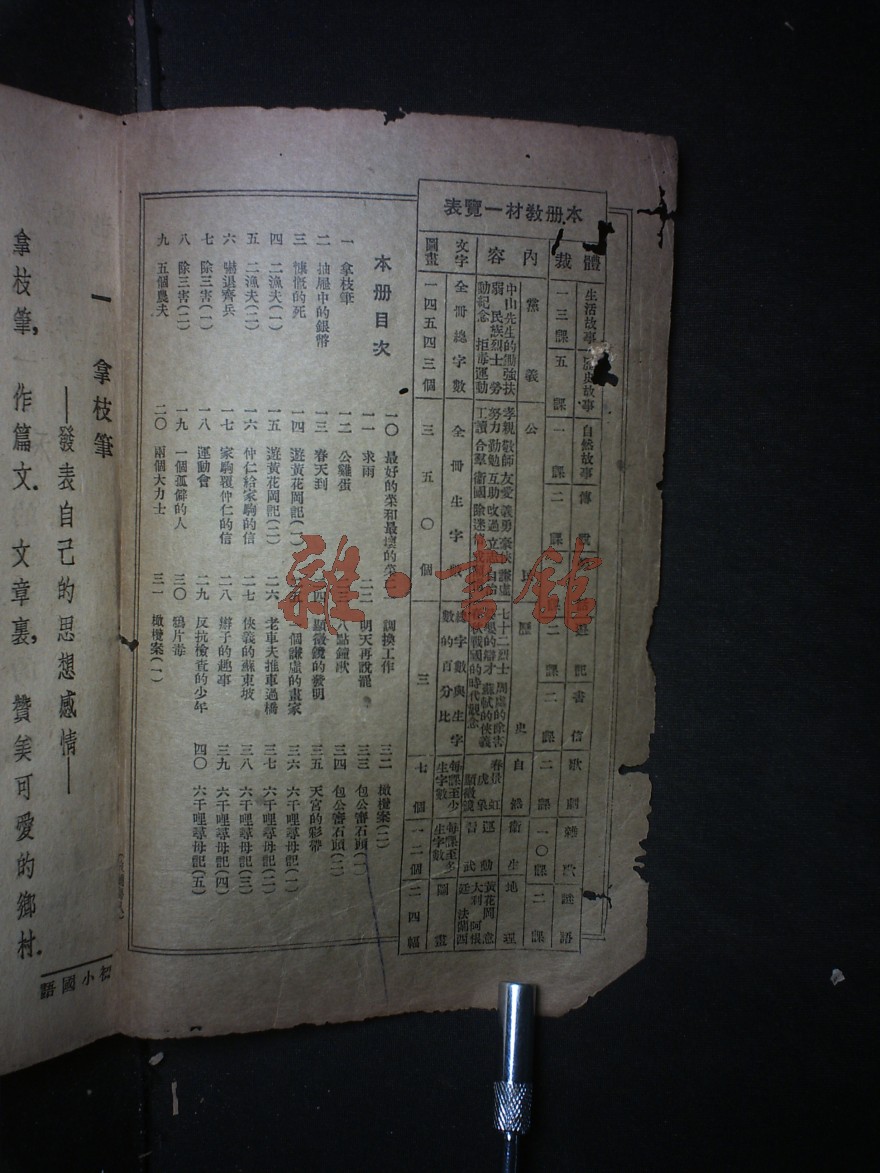 本册教材一覽表
體裁
生活故事 一三課
歷史故事 五課
自然故事 一課
傳 二課
遊記 二課
書信 二課
歌劇 二課
雜歌 一〇課
謎語 二課
內容
黨義
中山先生的勵強扶
弱 民族烈士 勞
動紀念 拒毒運動
公民
孝親 敬師 友愛 義勇 豪俠 謙虛
努力 勤勉 互助 改過 立志 自治
工讀 合羣 衛國 除迷信
歷史
七十二烈士 周處的除害
的辯才 蘇軾的俠義
戰國的時代觀念
自然
春景 虹
虎 象
顯微鏡
衛生
運動
地理
黃花岡 意
大利 阿根
廷 法蘭西
文字
全冊總字數
全冊生字數
總字數與生字
數的百分比
每課至少
生字數
每課至多
生字數
圖畫
圖畫
一四五四三個
三五〇個
三
七個
一二個
二四幅
本册目次
一 拿枝筆
二 抽屜中的銀幣
三 慷慨的死
四 二漁夫(一)
五 二漁夫(二)
六 嚇退齊兵
七 除三害(一)
八 除三害(二)
九 五個農夫
一〇 最好的菜和最壞的菜
一一 求雨
一二 公雞蛋
一三 春天到
一四 遊黃花岡記(一)
一五 遊黃花岡記(二)
一六 仲仁給家駒的信
一七 家駒覆仲仁的信
一八 運動會
一九 一個孤僻的人
二〇 兩個大力士
調換工作
二二 明天再說罷
八點鐘歌
顯微鏡的發明
個謙虛的畫家
二六 老車夫推車過橋
二七 俠義的蘇東坡
二八 辮子的趣事
二九 反抗檢查的少年
三〇 鴉片毒
三一 橄欖案(一)
三二 橄欖案(二)
三三 包公審石頭(一)
三四 包公審石頭(二)
三五 天宮的彩帶
三六 六千哩尋母記(一)
三七 六千哩尋母記(二)
三八 六千哩尋母記(三)
三九 六千哩尋母記(四)
四〇 六千哩尋母記(五)
初小國語
一 拿枝筆
——發表自己的思想感情——
拿枝筆, 作篇文. 文章裏, 贊美可愛的鄉村.
雜·書館